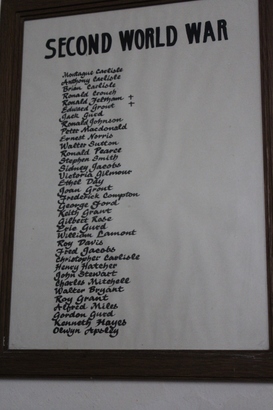 SECOND WORLD WAR
Montague Carlisle
Anthony Carlisle
Brian Carlisle
Ronald Crouch
Ronald Feltham +
Edward Grout +
Jack Gurd
Ronald Johnson
Peter Macdonald
Ernest Norris
Walter Sutton
Ronald Pearce
Stephen Smith
Sidney Jacobs
Victoria Gilmour
Ethel Day
Joan Grout
Frederick Compton
George Ford
Keith Grant
Gilbert Rose
Eric Gurd
William Lamont
Roy Davis
Fred Jacobs
Christopher Carlisle
Henry Hatcher
John Stewart
Charles Mitchell
Walter Bryant
Roy Grant
Alfred Miles
Gordon Gurd
Kenneth Hayes
Olwyn Apsley